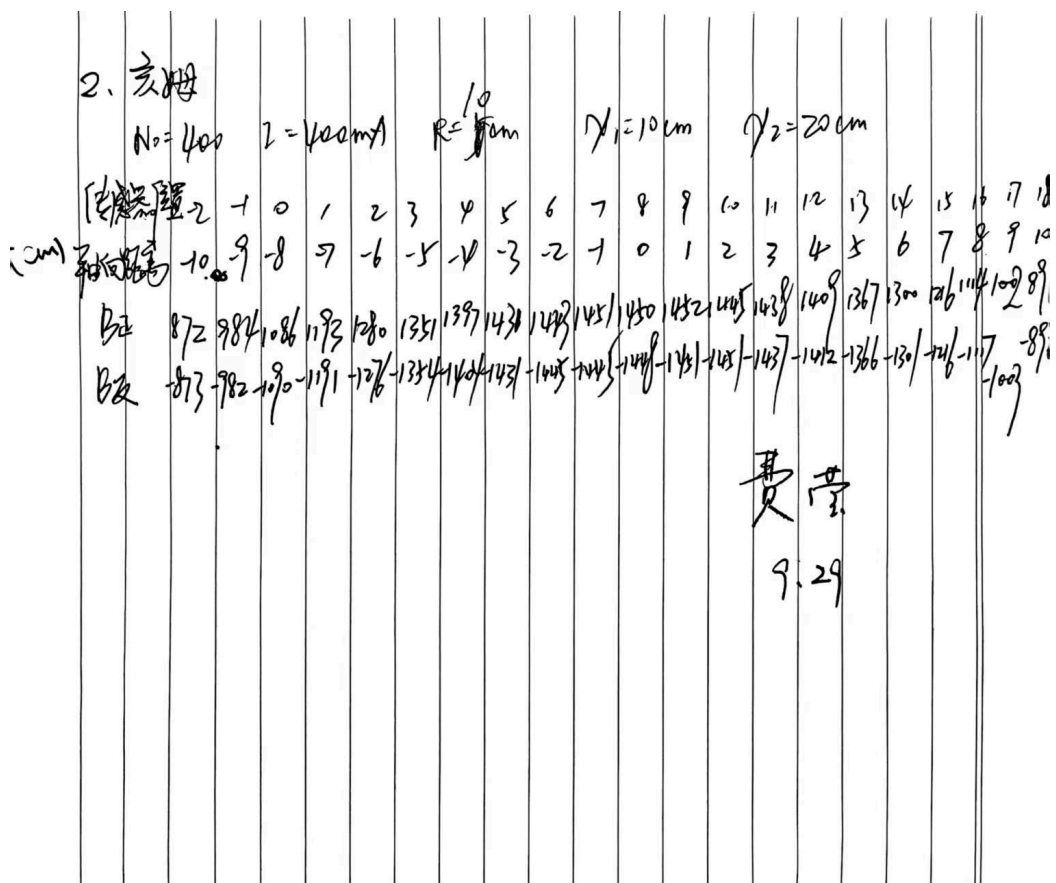 2、亥姆
N₀=400 I=400mA R=10cm X₁=10cm X₂=20cm
传感器位置 -2 -1 0 1 2 3 4 5 6 7 8 9 10 11 12 13 14 15 16 17 18
(cm) 轴向距离 -10 -9 -8 -7 -6 -5 -4 -3 -2 -1 0 1 2 3 4 5 6 7 8 9 10
B正 872 984 1086 1193 1280 1351 1397 1430 1443 1451 1450 1452 1445 1438 1409 1367 1300 1216 1114 1002
B反 -873 -982 -1090 -1191 -1276 -1354 -1404 -1431 -1445 -1445 -1448 -1451 -1451 -1437 -1412 -1366 -1301 -1216 -1117 -1003
费莹
9.29